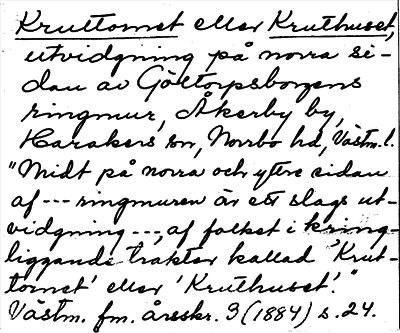 Kruttornet eller Kruthuset,
utvidgning på norra si-
dan av Göltorpsborgens
ringmur, Åkerby by,
Harakers sn, Norrbo hd, Västm. l.
"Midt på norra och yttre sidan
af --- ringmuren är ett slags ut-
vidgning ---, af folket i kring-
liggande trakter kallad 'Krut-
tornet' eller 'Kruthuset'."
Västm. fm. årsskr. 3 (1884) s. 24.